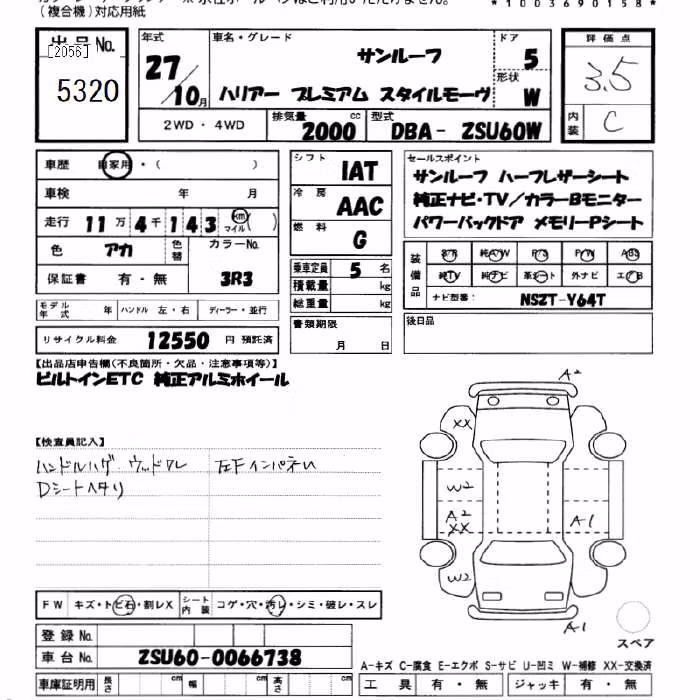 (複合機)対応用紙
*1003690158*
出品No.
[2056]
5320
年式
27/10月
車名・グレード
サンルーフ
ハリアー プレミアム スタイルモーヴ
ドア
5
形状
W
評価点
3.5
内装
C
2WD・4WD
排気量
2000 cc
型式
DBA- ZSU60W
車歴 自家用・( )
車検 年 月
走行 11万4千143 km マイル ( )
色 アカ
色替
カラーNo.
3R3
保証書 有・無
モデル年式 年 ハンドル 左・右 ディーラー・並行
リサイクル料金 12550 円 預託済
シフト
IAT
冷房
AAC
燃料
G
乗車定員 5 名
積載量 kg
総重量 kg
書類期限
月 日
セールスポイント
サンルーフ ハーフレザーシート
純正ナビ・TV/カラーBモニター
パワーバックドア メモリーPシート
装備品
S/R 純A/W P/S P/W ABS
純TV 純ナビ 革シート 外ナビ エアB
ナビ型番: NSZT-Y64T
後日品
【出品店申告欄(不良箇所・欠品・注意事項等)】
ビルトインETC 純正アルミホイール
【検査員記入】
ハンドルハゲ・ウッドワレ
左Fインパネハレ
Dシートヘタリ
A2
XX
W2
A2
XX
A1
W2
A1
スペア
FW キズ・トビ石・割レX
シート内装 コゲ・穴・汚レ・シミ・破レ・スレ
登録No.
車台No. ZSU60-0066738
車庫証明用 長さ cm 幅 cm 高さ cm
A-キズ C-腐食 E-エクボ S-サビ U-凹ミ W-補修 XX-交換済
工具 有・無 ジャッキ 有・無